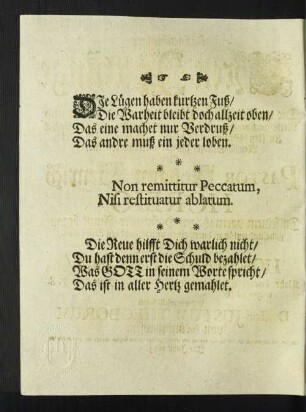 DJe Lügen haben kurtzen Fuß/
Die Warheit bleibt doch allzeit oben/
Das eine machet nur Verdruß/
Das andre muß ein jeder loben.
* * *
Non remittitur Peccatum,
Nisi restituatur ablatum.
* * *
Die Reue hilfft Dich warlich nicht/
Du hast denn erst die Schuld bezahlet/
Was GOTT in seinem Worte spricht/
Das ist in aller Hertz gemahlet.